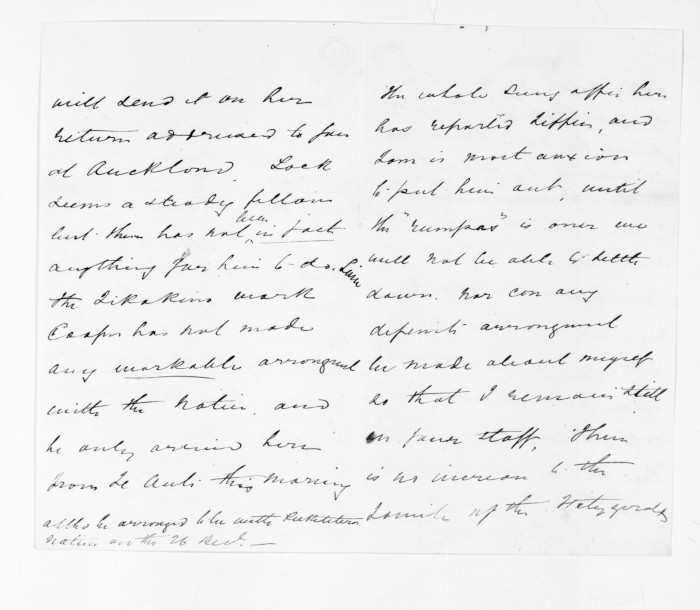 will send it on her
return addressed to you
at Auckland. Lock
seems a steady fellow
but there has not been in fact
anything for him to do. Since
the Tikokino work
Cooper has not made
any workable arrangement
with the natives, and
he only arrived here
from Te Aute this morning
altho he arranged to be with
natives on the 26 Decr. —
The whole Survey office here
has reported Tiffen, and
Tom is most anxious
to put him out, until
the "rumpus" is over we
will not be able to settle
down. nor can any
definite arrangement
be made about myself
so that I remain still
on your staff. There
is no increase to the
family of the Fitzgeralds